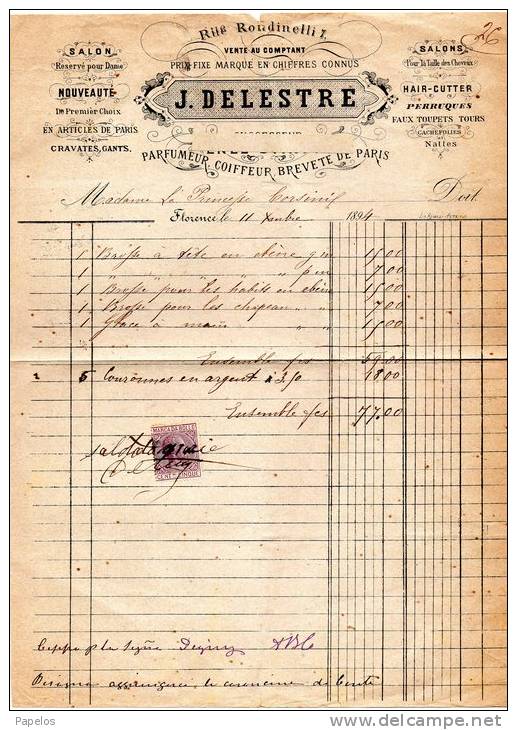 Rue Rondinelli 7.
26
VENTE AU COMPTANT
PRIX FIXE MARQUÉ EN CHIFFRES CONNUS
SALON
Reservé pour Dame
NOUVEAUTÉ
De Premier Choix
EN ARTICLES DE PARIS
CRAVATES, GANTS.
J. DELESTRE
SUCCESSEUR
PARFUMEUR, COIFFEUR, BREVETÉ DE PARIS
SALONS
Pour la Taille des Cheveux
HAIR-CUTTER
PERRUQUES
FAUX TOUPETS TOURS
CACHEFOLIES
Nattes
Madame La Princesse Corsini Doit
Florence, le 11 Xembre 1894
1 Brosse à tête en ébène g m 15.00
1 " " " " " p m 7.00
1 Brosse pour les habits en ébène 15.00
1 Brosse pour les chapeau " " 7.00
1 Glace à main " " 15.00
Ensemble fcs 59.00
5 Couronnes en argent à 3.50 18.00
Ensemble fcs 77.00
MARCA DA BOLLO
CENT. CINQUE
saldato grazie
la Sigña
Papelos
www.delcampe.net